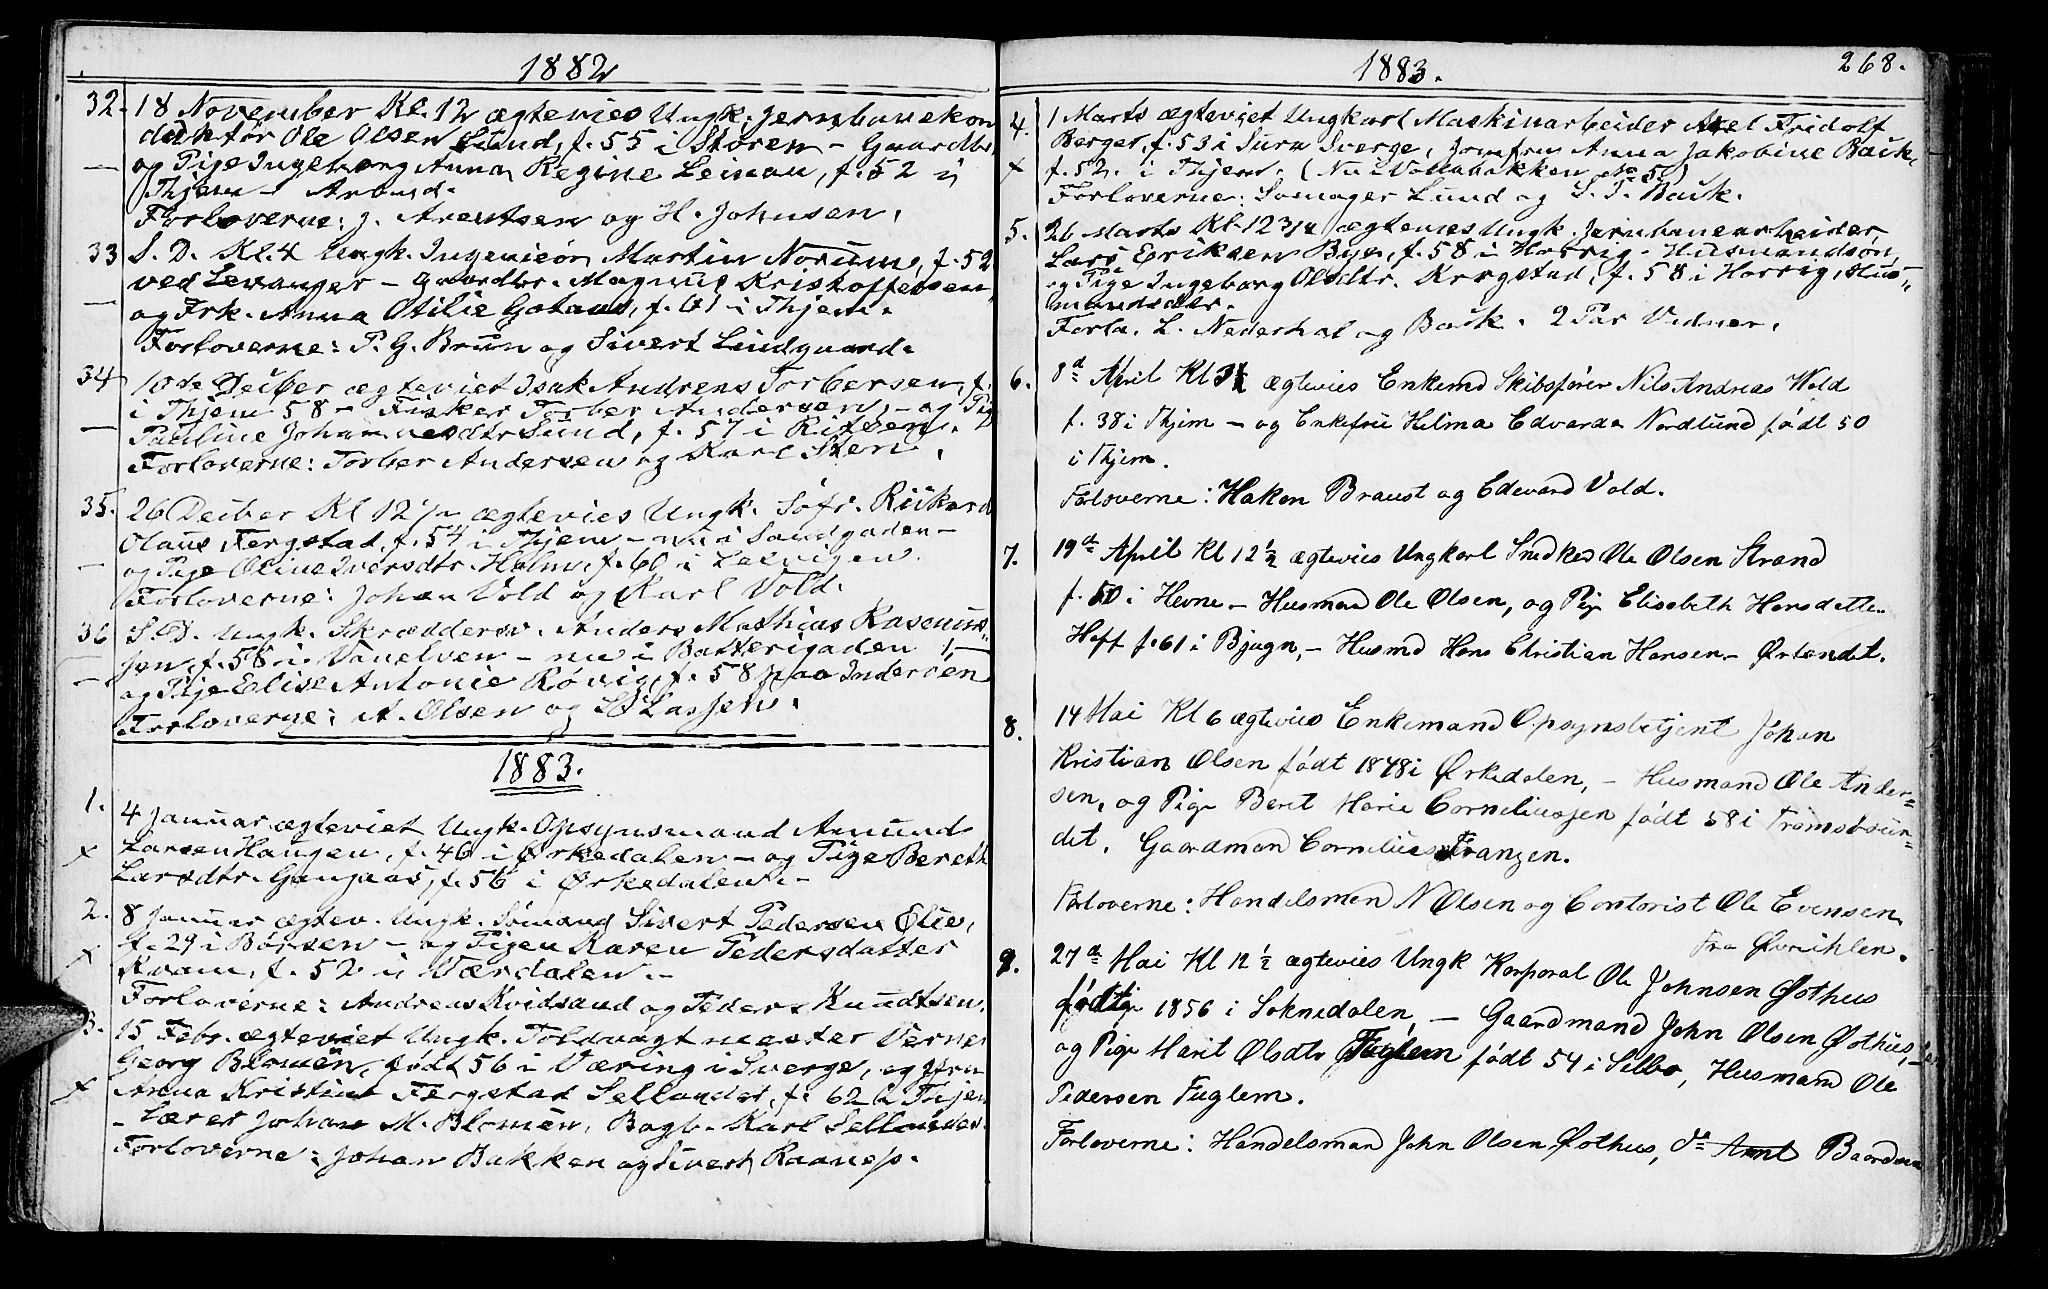 1882
32. 18 November Kl. 12 ægtevies Ungk. Jernbanekon
duktør Ole Olsen Lund, f. 55 i Støren - Gaardbr.
og Pige Ingeborg Anna Regine Leinan, f. 52 i
Thjem - Arbmd.
Forloverne: J. Arentsen og H. Johnsen.
33 S. D. Kl. 4 Ungk. Ingeniør Martin Norum, f. 52
ved Levanger - Gaardbr. Magnus Kristoffersen,
og Frk. Anna Otilie Gotaas, f. 61 i Thjem.
Forloverne: P. G. Brun og Sivert Lindgaard.
34 10de Dciber ægteviet Isak Andreas Torbersen, f.
i Thjem 58 - Fisker Torber Andersen, - og Pig
Pauline Johannesdtr Sund, f. 57 i Ritsen.
Forloverne: Torber Andersen og Karl Steen.
35. 26 Dciber Kl 12 1/2 ægtevies Ungk. Søfr. Rikard
Olaus Fergstad, f. 54 i Thjem - nu i Sandgaden -
og Pige Oline Iversdtr. Holm, f. 60 i Leksvigen.
Forloverne: Johan Vold og Karl Vold.
36 S. D. Ungk. Skræddersv. Anders Mathias Rasmus-
sen, f. 58 i Vanelven - nu i Batterigaden 1, -
og Pige Elise Antonie Røvig, f. 58 paa Inderøen
Forloverne: A. Olsen og Larsen.
1883.
1. 4 Januar ægteviet Ungk. Opsynsmand Amund
x Larsen Haugen, f. 46 i Ørkedalen - og Pige Bereth
Larsdtr. Gangaas, f. 56 i Ørkedalen. -
2. 8 Januar ægtev. Ungk. Sømand Sivert Pedersen Ølie,
x f. 29 i Børsen - og Pigen Karen Pedersdatter
Kvam, f. 52 i Værdalen. -
Forloverne: Andreas Kvidsand og Peder Knudtsen.
3. 15 Febr. ægteviet Ungk. Toldvagtmester Verner
Georg Blomén, født 56 i Væring i Sverge, og Jfru
x Anna Kristine Fergstad Sellander, f. 62 i Thjem
- Lærer Johan M. Blomén, Bogb. Karl Sellander.
Forloverne: Johan Bakken og Sivert Raanes.
1883.
268.
4. 1 Marts ægteviet Ungkarl Maskinarbeider Axel Fridolf
Berger, f. 53 i Sura Sverge, Jomfru Anna Jakobine Back,
x f. 52. i Thjem. (Nu i Vollabakken No 5)
Forloverne: Lund og S. P. Back.
5. 26 Marts Kl. 12 3/4 ægtevies Ungk. Jernbanearbeider
Lars Eriksen Bye, f. 58 i Horrig - Husmandsøn,
og Pige Ingeborg Olsdtr. Krogstad, f. 58 i Horrig, Hus-
mandsdtr.
Forlo. L. Nederhal og Back. 2 Par Vidner.
6. 8d April Kl ægtevies Enkemd Skibsfører Nils Andreas Wold
f. 38 i Thjem - og Enkefru Hilma Edvarda Nordlund født 50
i Thjem.
Forloverne: Haken Braust og Edevard Vold.
7. 19d April Kl 12 1/2 ægtevies Ungkarl Snedker Ole Olsen Strand
f. 50 i Hevne - Husmand Ole Olsen, og Pige Elisebeth Hansdatter
Hoff f. 61 i Bjugn, - Husmd Hans Christian Hansen - Ørlandet.
8. 14 Mai Kl 6 ægtevies Enkemand Opsynsbetjent Johan
Kristian Olsen født 1848 i Ørkedalen, - Husmand Ole Ander-
sen, og Pige Beret Marie Corneliussen født 58 i Tromsøsun-
det. Gaardmand Cornelius Franzen.
Forloverne: Handelsmand N Olsen og Contorist Ole Evensen
Fra Øvreihlen.
9. 27d Mai Kl 12 1/2 ægtevies Ungk Korporal Ole Johnsen Østhus
født 1856 i Soknedalen, - Gaardmand John Olsen Østhus, -
og Pige Marit Olsdtr Fuglem født 54 i Selbo, Husmand Ole
Pedersen Fuglem.
Forloverne: Handelsmand John Olsen Østhus, do Arnt Baardsen